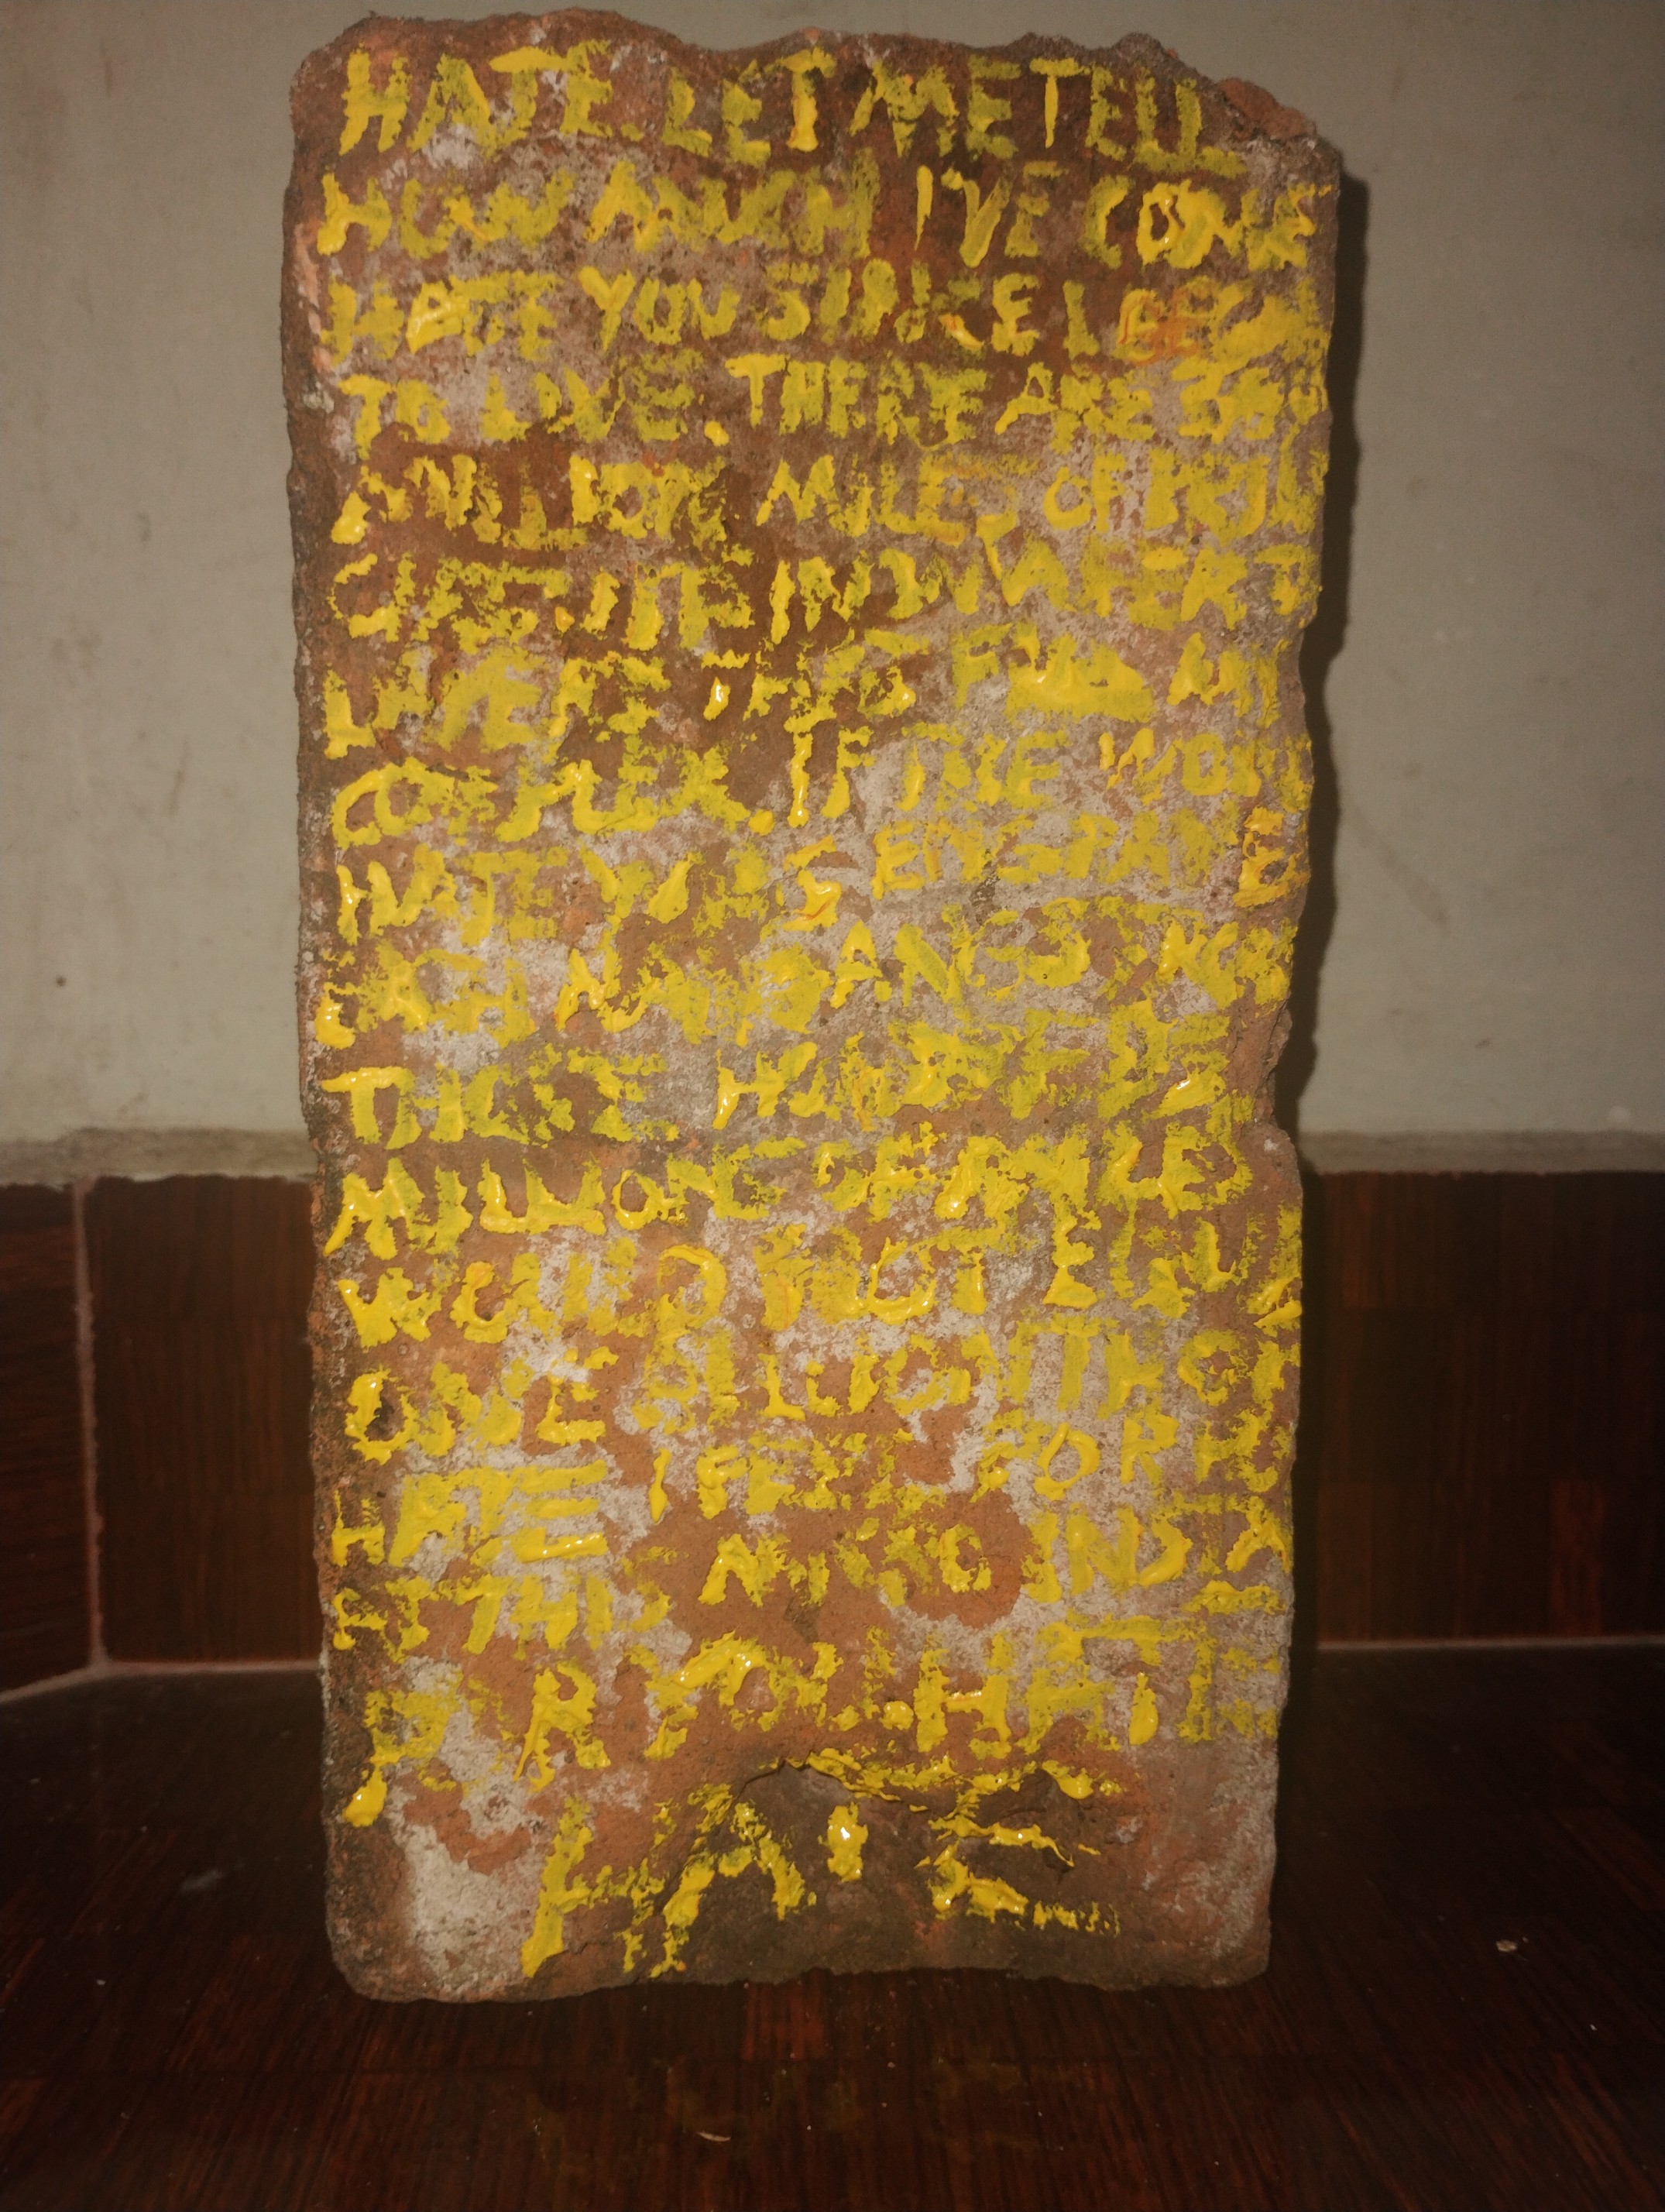 HATE. LET ME TELL
HOW MUCH I'VE COME
HATE YOU SINCE I BE
TO LIVE. THERE ARE
MILLION MILES OF PRIN
IN WAFER T
LAYERS THAT FILL MY
COMPLEX. IF THE WOR
HATE WAS ENGRAVED
EACH NANOANGSTROM
THOSE HUNDREDS
MILLIONS OF MILES
WOULD NOT EQUAL
ONE BILLIONTH OF
HATE I FEEL FOR
AT THIS MICRO INSTA
FOR YOU. HATE
HATE